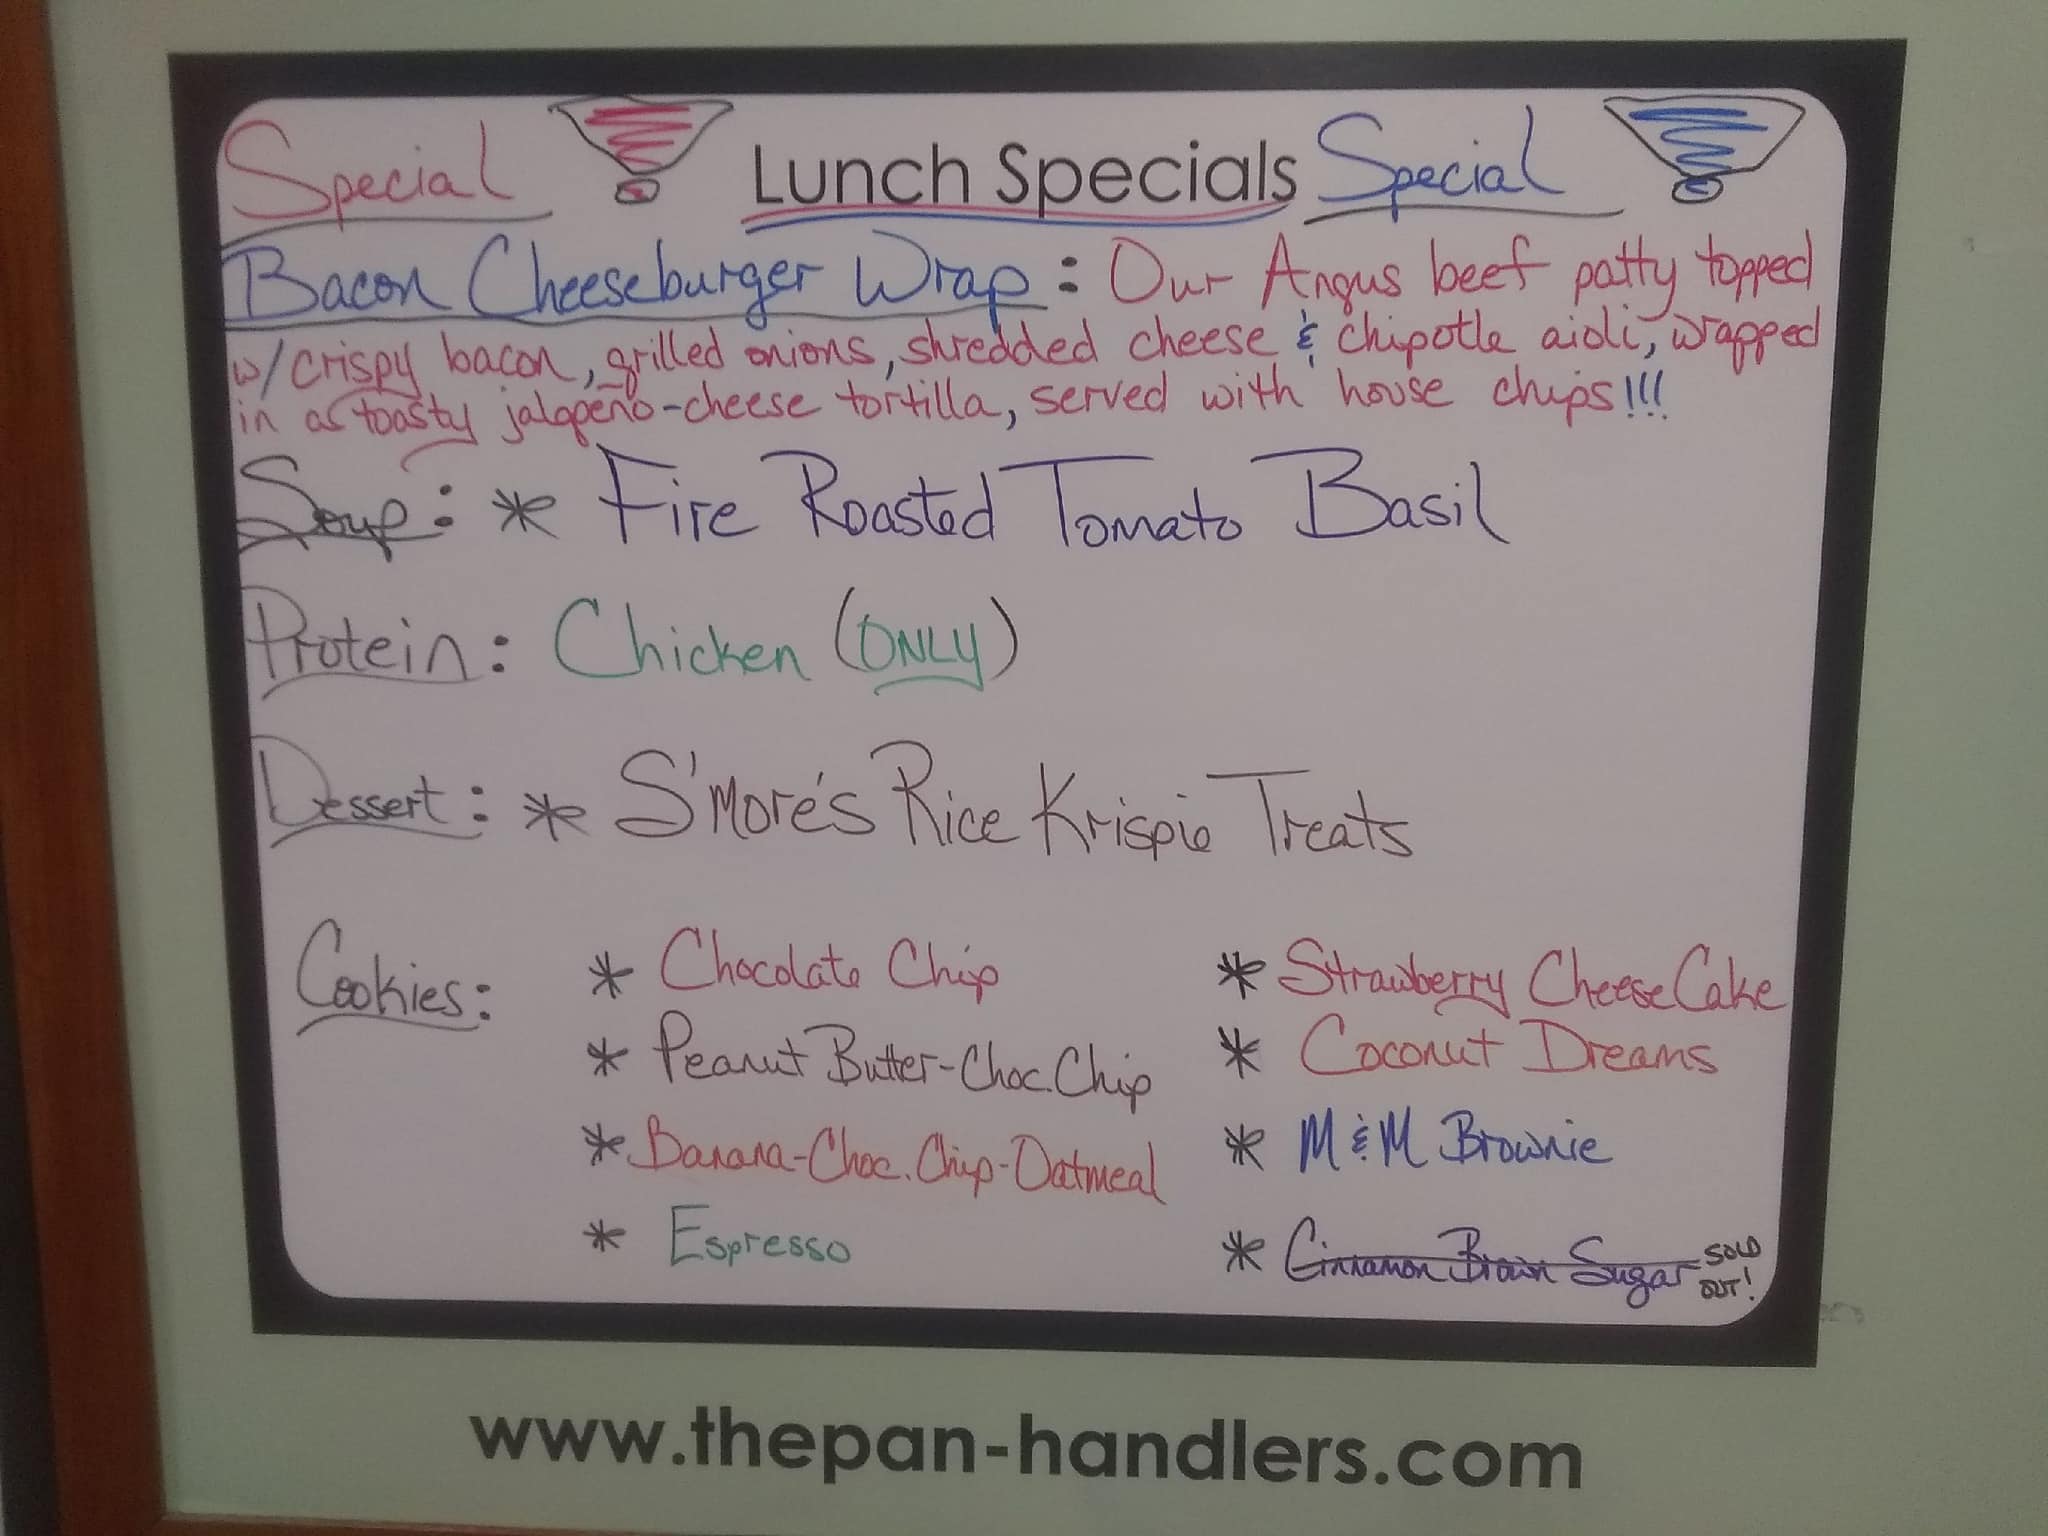 Special Lunch Specials Special
Bacon Cheeseburger Wrap: Our Angus beef patty topped
w/crispy bacon, grilled onions, shredded cheese & chipotle aioli, wrapped
in a toasty jalapeno-cheese tortilla, served with house chips!!!
Soup: * Fire Roasted Tomato Basil
Protein: Chicken (ONLY)
Dessert: * S'more's Rice Krispie Treats
Cookies: * Chocolate Chip * Strawberry CheeseCake
* Peanut Butter-Choc.Chip * Coconut Dreams
* Banana-Choc.Chip-Oatmeal * M&M Brownie
* Espresso * Cinnamon Brown Sugar SOLD OUT!
www.thepan-handlers.com